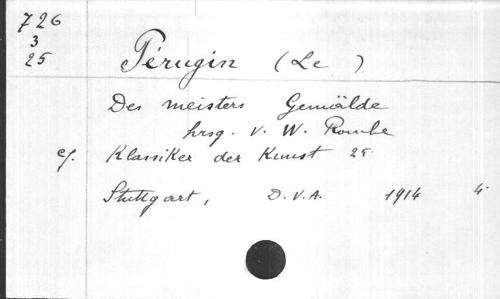 726
3
25
Pérugin (Le )
Des meisters Gemälde
hrsg. v. W. Rombe
cf. Klassiker der Kunst 25.
Stuttgart, D.V.A. 1914 4.